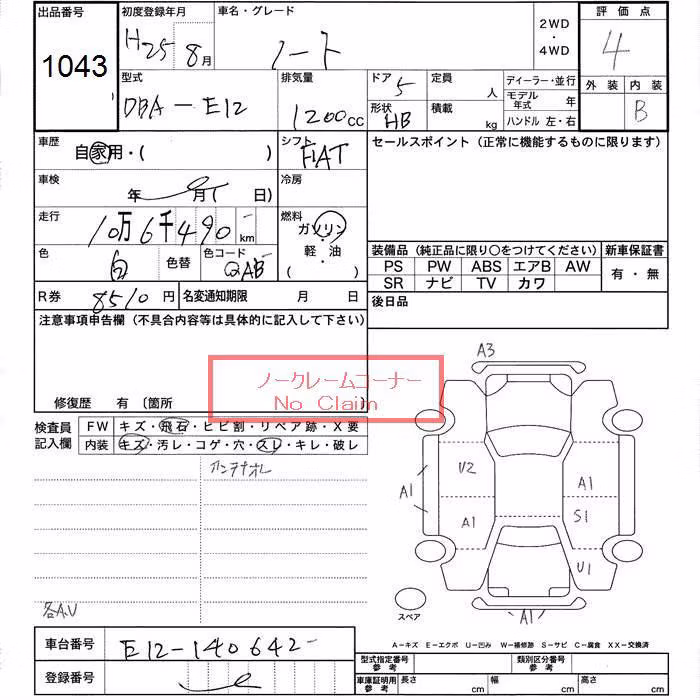 出品番号 初度登録年月 車名・グレード 2WD・4WD 評価点
1043 H25 8月 ノート 4
型式 排気量 ドア 5 定員 人 ディーラー・並行 外装 内装
DBA-E12 1200cc 形状 HB 積載 kg モデル年式 年 B
ハンドル 左・右
車歴 自家用・( ) シフト FIAT セールスポイント (正常に機能するものに限ります)
車検 年 月 日) 冷房
走行 10万6千490km 燃料 ガソリン
軽・油
( )
色 白 色替 色コード QAB 装備品 (純正品に限り〇をつけてください) 新車保証書
PS PW ABS エアB AW 有・無
SR ナビ TV カワ
R券 8510円 名変通知期限 月 日 後日品
注意事項申告欄 (不具合内容等は具体的に記入して下さい)
ノークレームコーナー
No Claim
修復歴 有 〔箇所
検査員記入欄 FW キズ・飛石・ヒビ割・リペア跡・X要
内装 キズ・汚レ・コゲ・穴・スレ・キレ・破レ
アンテナオレ
各A.U
A3
U2 A1
A1 A1 S1
U1
A1
スペア
A-キズ E-エクボ U-凹み W-補修跡 S-サビ C-腐食 XX-交換済
車台番号 E12-140642
登録番号
型式指定番号 参考 類別区分番号 参考
車庫証明用 参考 長さ cm 幅 cm 高さ cm